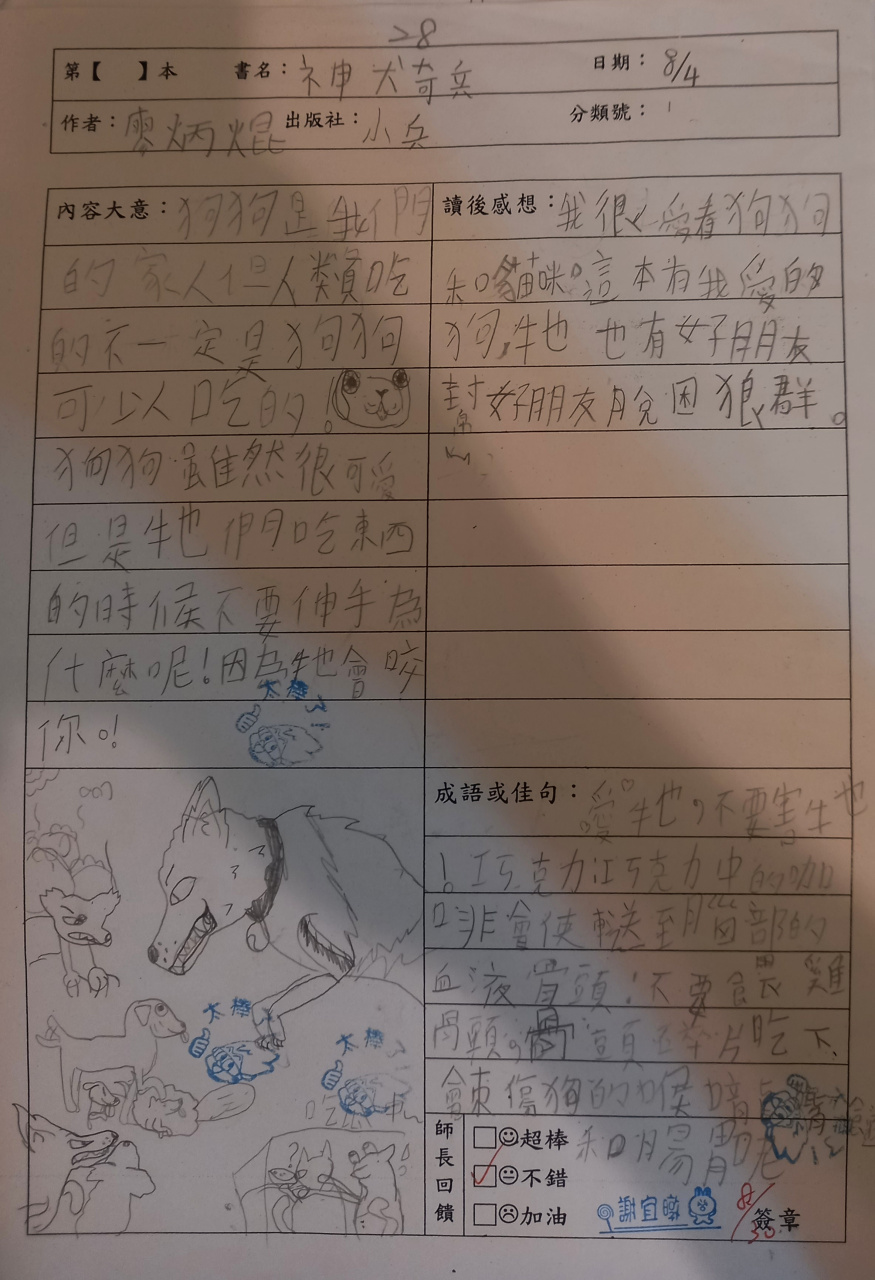 28
第【 】本 書名：神犬奇兵 日期：8/4
作者：廖炳焜 出版社：小兵 分類號：
內容大意：狗狗是我們
的家人但人類吃
的不一定是狗狗
可以人吃的！
狗狗雖然很可愛
但是牠們吃東西
的時候不要伸手為
什麼呢！因為牠會咬
你。！
太棒了！
讀後感想：我很愛看狗狗
和貓咪。這本有我愛的
狗，牠也有好朋友
幫好朋友脫困狼群。
成語或佳句：愛牠，不要害牠
！巧克力江巧克力中的咖
啡會使輸送至腦部的
血液
骨頭！不要餵雞
骨頭。骨頭碎片吃下，
會刺傷狗的喉嚨
和腸胃呢
太棒
太棒
師長回饋
超棒
不錯
加油
謝宜
簽章
8/30